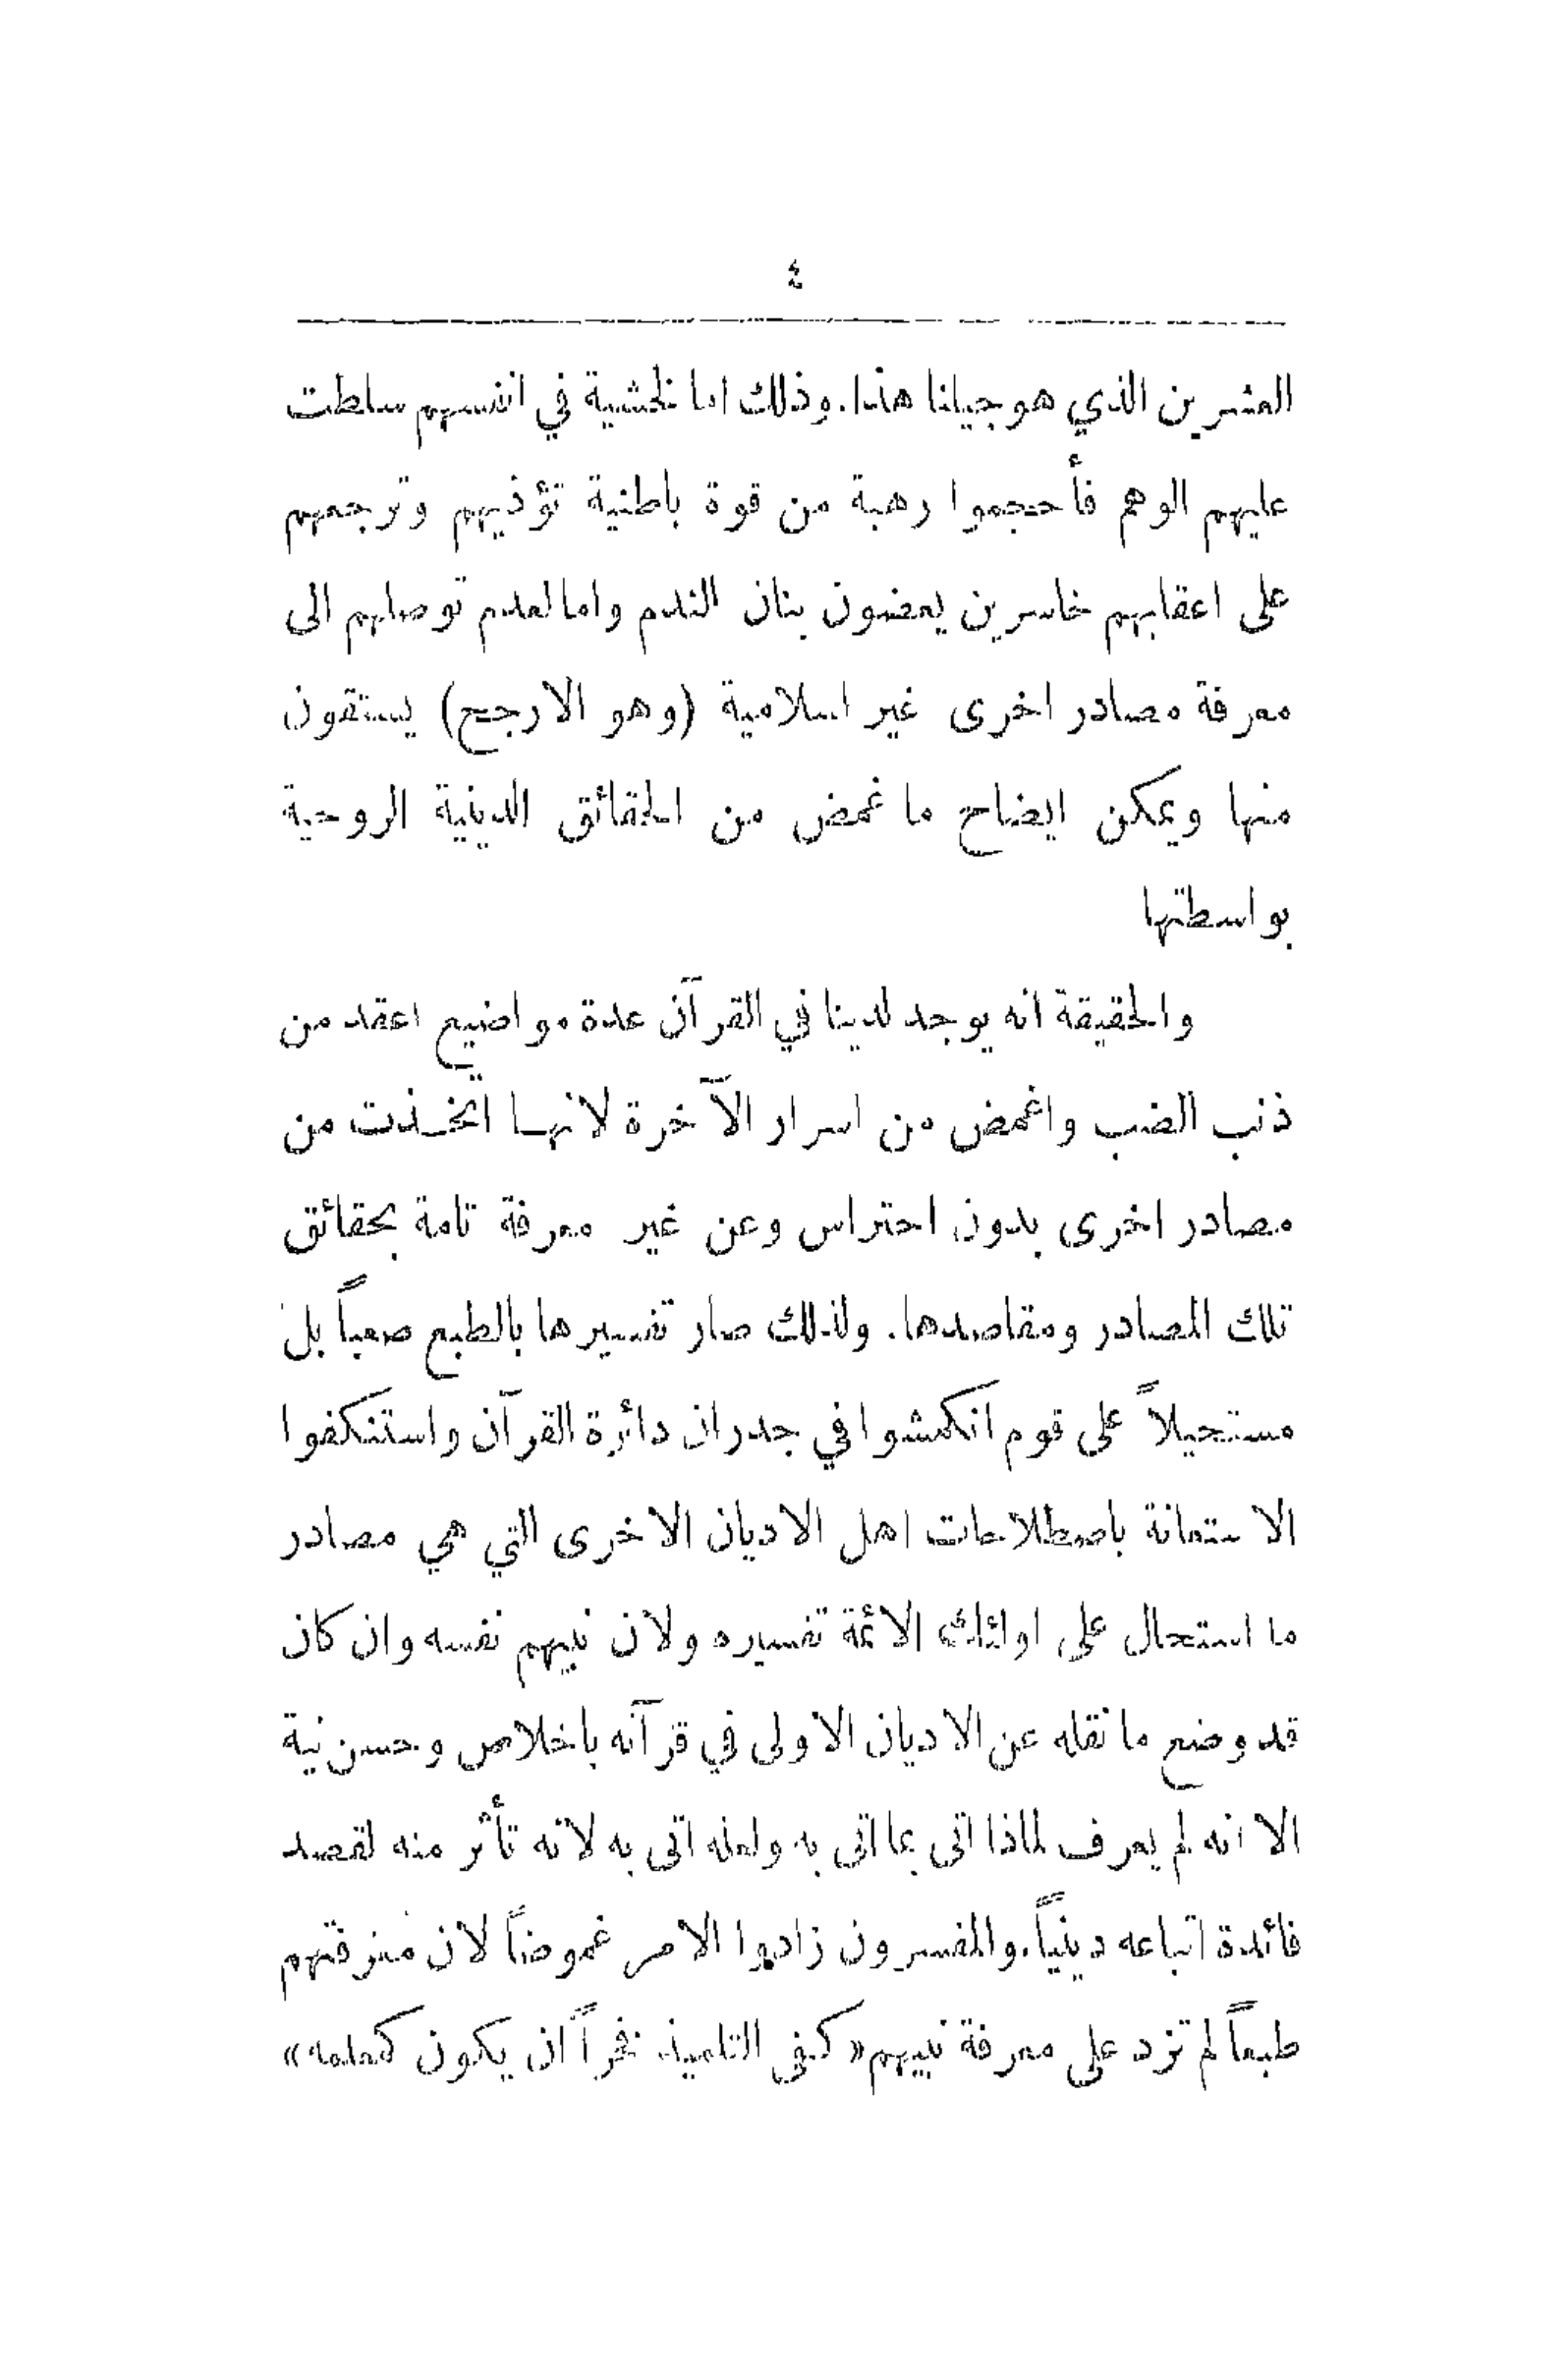 ٤
العشرين الذي هو جيلنا هذا. وذلك اما لخشية في انفسهم سلطت
عليهم الوهم فأحجموا رهبة من قوة باطنية تؤذيهم وترجعهم
على اعقابهم خاسرين يعضون بنان الندم واما لعدم توصلهم الى
معرفة مصادر اخرى غير اسلامية (وهو الارجح) يستقون
منها ويمكن ايضاح ما غمض من الحقائق الدينية الروحية
بواسطتها
والحقيقة انه يوجد لدينا في القرآن عدة مواضيع اعقد من
ذنب الضب واغمض من اسرار الآخرة لانها اتخذت من
مصادر اخرى بدون احتراس وعن غير معرفة تامة بحقائق
تلك المصادر ومقاصدها. ولذلك صار تفسيرها بالطبع صعباً بل
مستحيلاً على قوم انكمشوا في جدران دائرة القرآن واستنكفوا
الاستعانة باصطلاحات اهل الاديان الاخرى التي هي مصادر
ما استحال على اولئك الائمة تفسيره ولان نبيهم نفسه وان كان
قد وضع ما نقله عن الاديان الاولى في قرآنه باخلاص وحسن نية
الا انه لم يعرف لماذا اتى بما اتى به ولعله اتى به لانه تأثر منه لقصد
فائدة اتباعه دينياً. والمفسرون زادوا الامر غموضاً لان معرفتهم
طبعاً لم تزد على معرفة نبيهم «كفى التلميذ فخراً ان يكون كمعلمه»